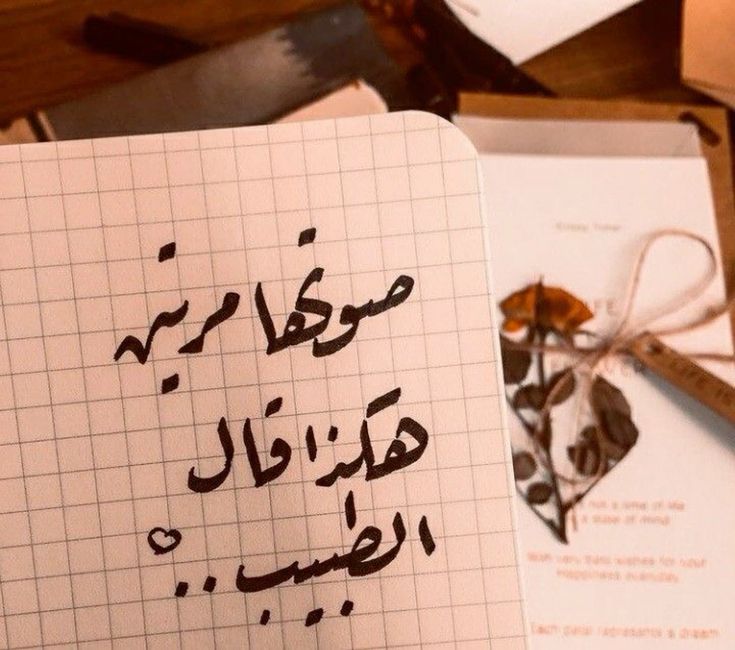 صوتها مرتين
هكذا قال
الطبيب.. ♡
Enjoy Time
is not a time of life
a state of mind
With very best wishes for your
happiness everyday
Each petal represents a dream
LIFE IS